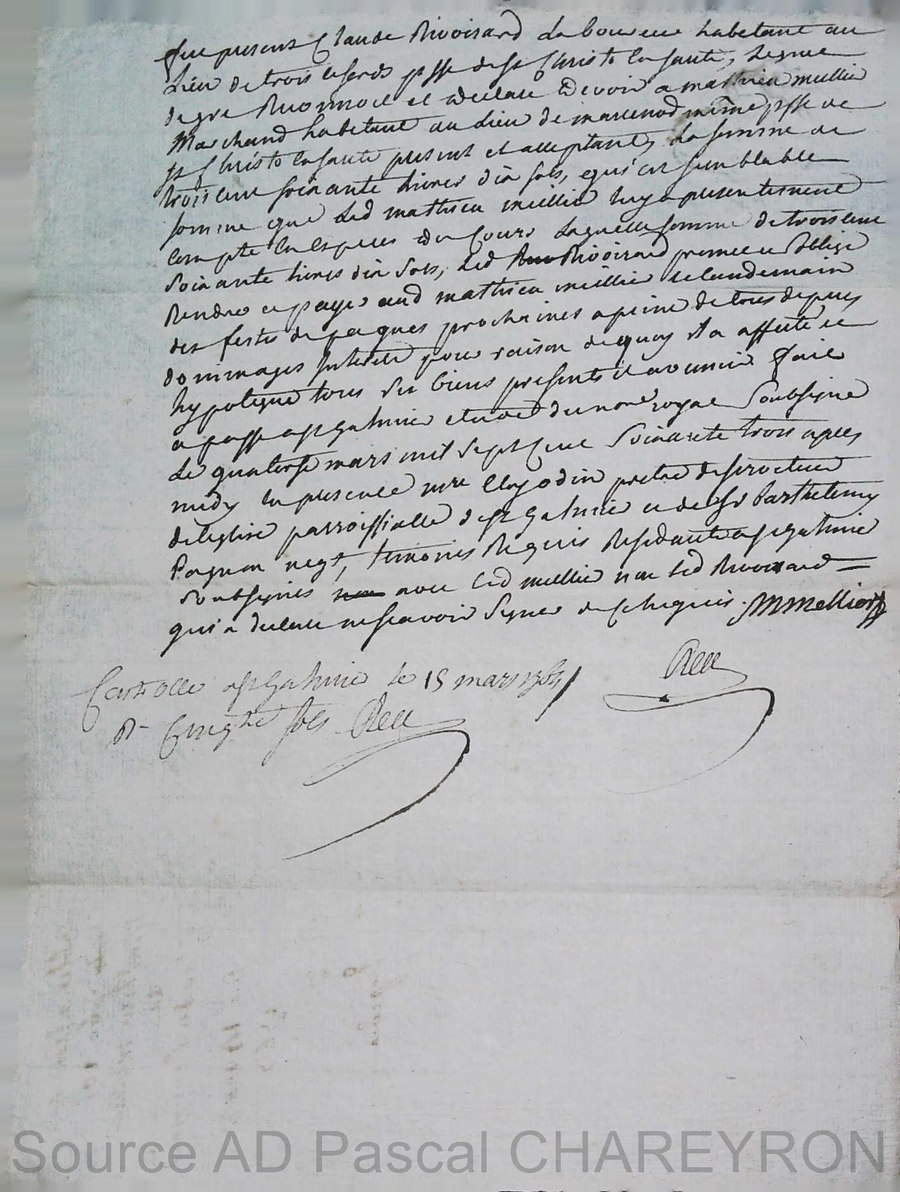 fut present Claude Rivoirard laboureur habitant au
Lieu de trois psse de st Christo lafaute, Lequel
de gre Reconnoit et declare devoir a mathieu mellier
Marchand habitant au Lieu de marcenod même psse de
st Christo en faute present et acceptant, La somme de
trois cent soixante Livres dix sols, pareille et semblable
somme que Led mathieu mellier luy a presentement
compté En especes du Cours Laquelle somme de trois cent
soixante livres dix sols, Led Rivoirard promet et oblige
Rendre et payer aud mathieu mellier le landemain
des festes de paques prochaines a peine de tous depens
dommages Interets pour raison de quoy il a affecté et
hypotequé tous ses biens presents et avenir fait
et passé a st galmier etude du nore royal soubsigné
Le quatorse mars mil sept cent soixante trois apres
midy En presence mre odin pretre desservateur
de l'eglise parroissialle de st galmier et de sr Barthelemy
pagnon negt, temoins Requis Residants a st galmier
soubsignés avec led mellier non led Rivoirard
qui a declaré ne scavoir signer de ce Requis. MMellier
Rey
Controllé a st galmier le 15 mars 1763
Rt sols Rey
Source AD Pascal CHAREYRON